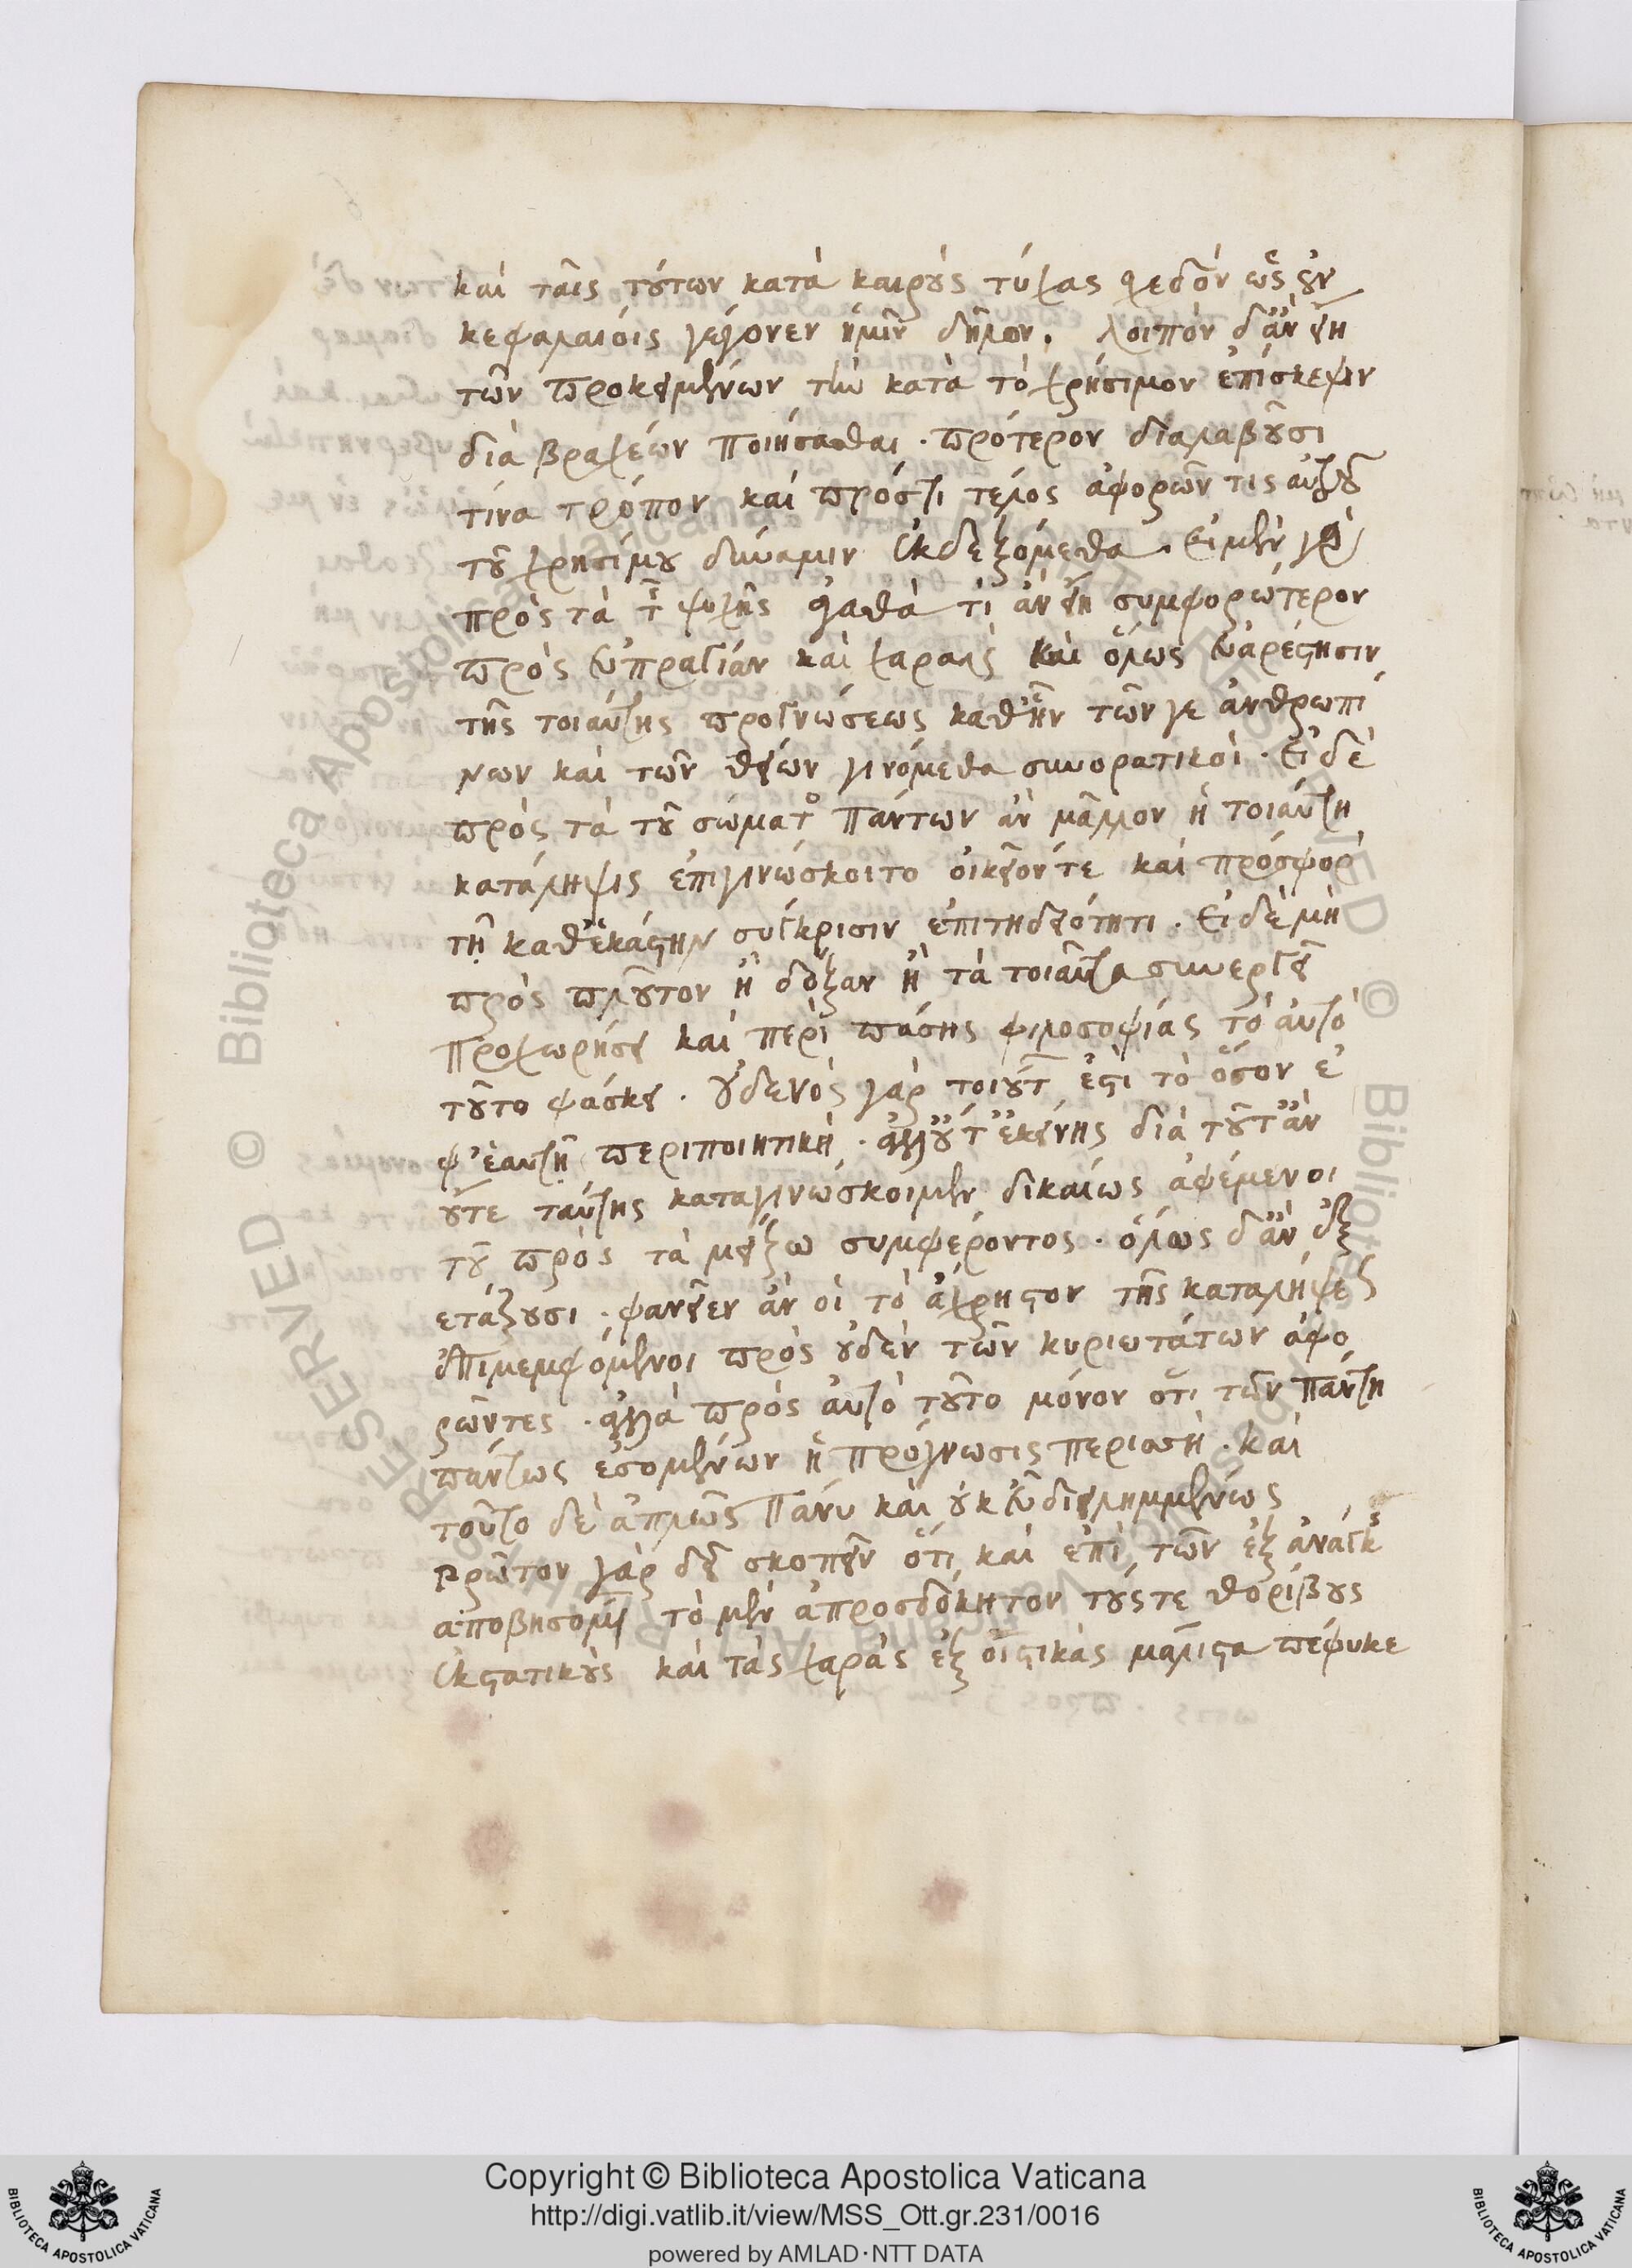 καὶ ταῖς τούτων κατὰ καιροὺς τύχας σχεδὸν ὡς ἐν
κεφαλαίοις γέγονεν ἡμῖν δῆλον. λοιπὸν δ' ἂν εἴη
τῶν προκειμένων τὴν κατὰ τὸ χρήσιμον ἐπίσκεψιν
διὰ βραχέων ποιήσασθαι. πρότερον διαλαβοῦσι
τίνα τρόπον καὶ πρός τι τέλος ἀφορῶντες αὐτοῦ
τοῦ χρησίμου δύναμιν ἐκδεξόμεθα. εἰ μὲν γὰρ
πρὸς τὰ τῆς ψυχῆς ἀγαθὰ τί ἂν εἴη συμφορώτερον
πρὸς εὐπραγίαν καὶ χαρὰν καὶ ὅλως εὐαρέστησιν
τῆς τοιαύτης προγνώσεως καθ' ἣν τῶν γε ἀνθρωπί
νων καὶ τῶν θείων γινόμεθα συνορατικοί. εἰ δὲ
πρὸς τὰ τοῦ σώματος πάντων ἂν μᾶλλον ἡ τοιαύτη
κατάληψις ἐπιγινώσκοιτο οἰκεῖόν τε καὶ πρόσφορον
τῇ καθ' ἑκάστην σύγκρισιν ἐπιτηδειότητι. εἰ δὲ μὴ
πρὸς πλοῦτον ἢ δόξαν ἢ τὰ τοιαῦτα συνεργεῖ
προχωρήσει καὶ περὶ πάσης φιλοσοφίας τὸ αὐτὸ
τοῦτο φάσκειν. οὐδενὸς γὰρ τοιούτων ἐστὶ τὸ ὅσον ἐ
φ' ἑαυτῇ περιποιητική. ἀλλ' οὔτ' ἐκείνης διὰ τοῦτ' ἂν
οὔτε ταύτης καταγινώσκοιμεν δικαίως ἀφέμενοι
τοῦ πρὸς τὰ μείζω συμφέροντος. ὅλως δ' ἂν ἐξ
ετάζουσι. φανεῖεν ἂν οἱ τὸ ἄχρηστον τῆς καταλήψεως
ἐπιμεμφόμενοι πρὸς οὐδὲν τῶν κυριωτάτων ἀφο
ρῶντες. ἀλλὰ πρὸς αὐτὸ τοῦτο μόνον ὅτι τῶν πάντη
πάντως ἐσομένων ἡ πρόγνωσις περισσή. καὶ
τοῦτο δὲ ἁπλῶς πάνυ καὶ οὐκ εὖ διειλημμένως
πρῶτον γὰρ δεῖ σκοπεῖν ὅτι καὶ ἐπὶ τῶν ἐξ ἀνάγκης
ἀποβησομένων τὸ μὲν ἀπροσδόκητον τούς τε θορύβους
ἐκστατικοὺς καὶ τὰς χαρὰς ἐξοιστικὰς μάλιστα πέφυκε
Copyright © Biblioteca Apostolica Vaticana
http://digi.vatlib.it/view/MSS_Ott.gr.231/0016
powered by AMLAD·NTT DATA